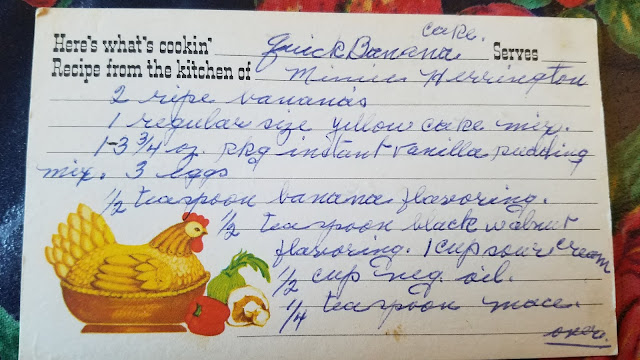 Here's what's cookin' Quick Banana cake. Serves
Recipe from the kitchen of Minnie Herrington
2 ripe bananas
1 regular size yellow cake mix.
1-3 3/4 oz. pkg instant vanilla pudding
mix. 3 eggs
1/2 teaspoon banana flavoring.
1/2 teaspoon black walnut
flavoring. 1 cup sour cream
1/2 cup veg. oil.
1/4 teaspoon mace.
over.